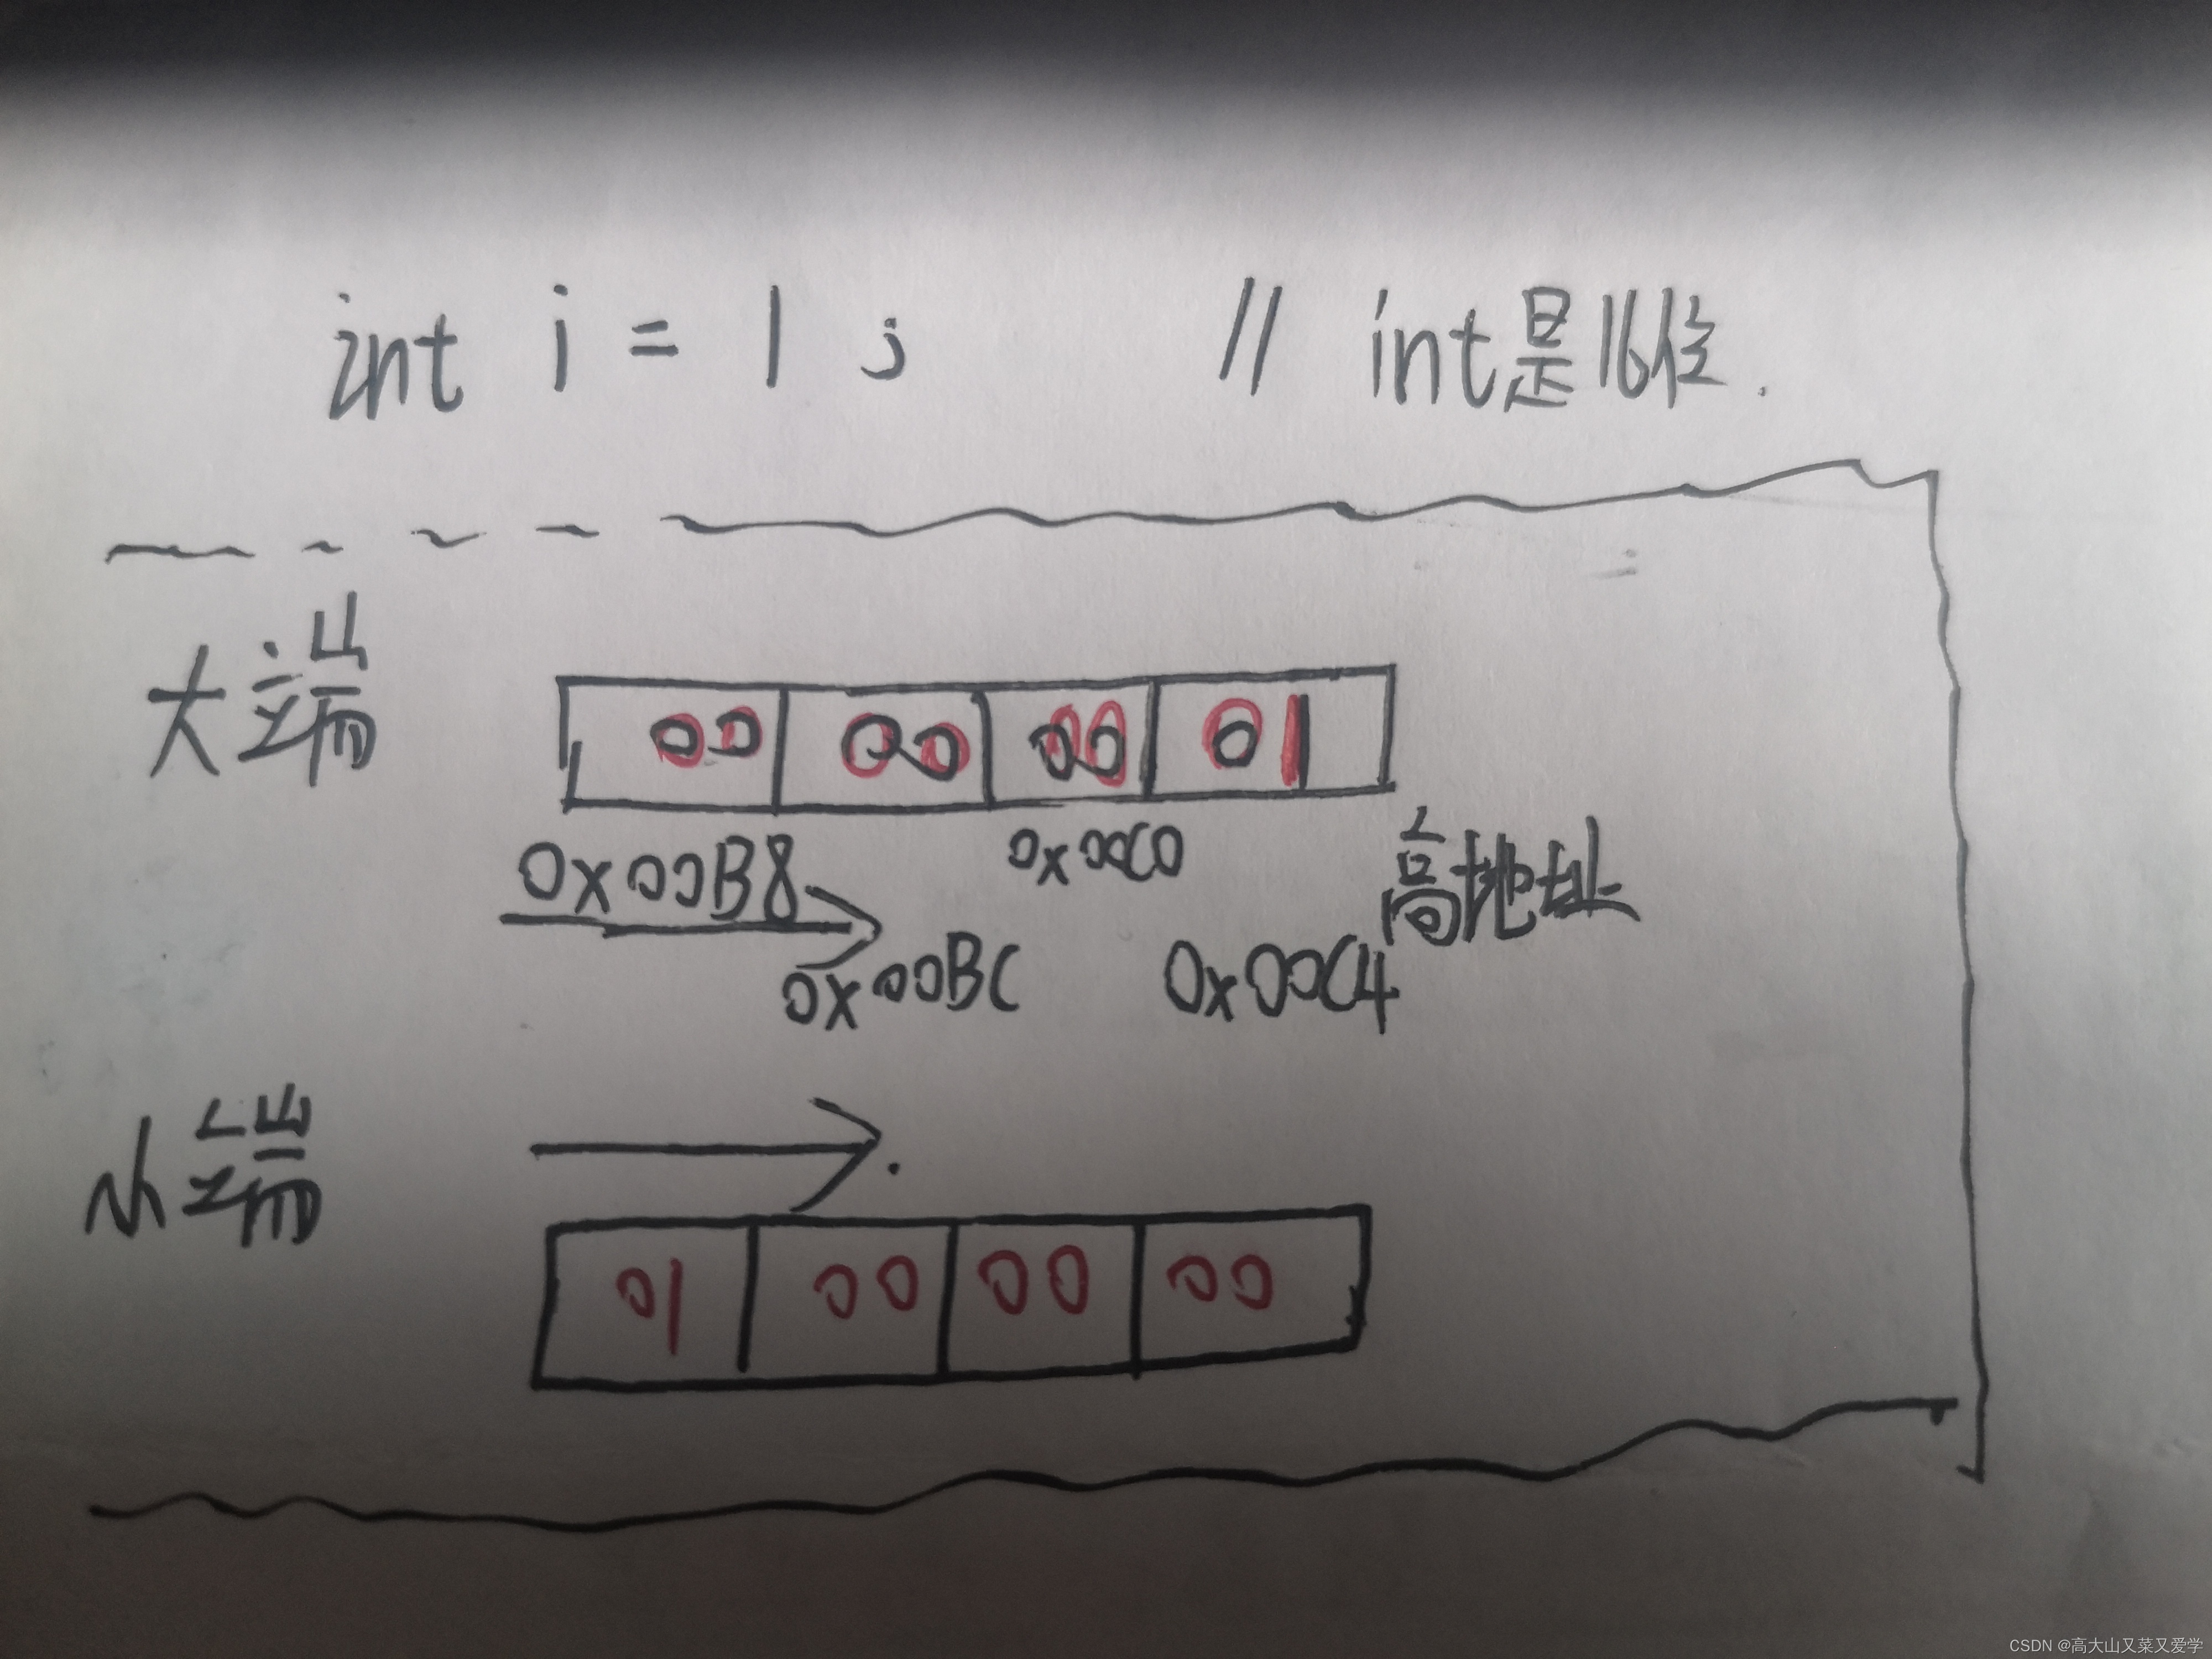 int i = 1 ; // int是16位.
大端
00 00 00 01
0x00B8 0x00C0 高地址
0x00BC 0x00C4
小端
01 00 00 00
CSDN @高大山又菜又爱学